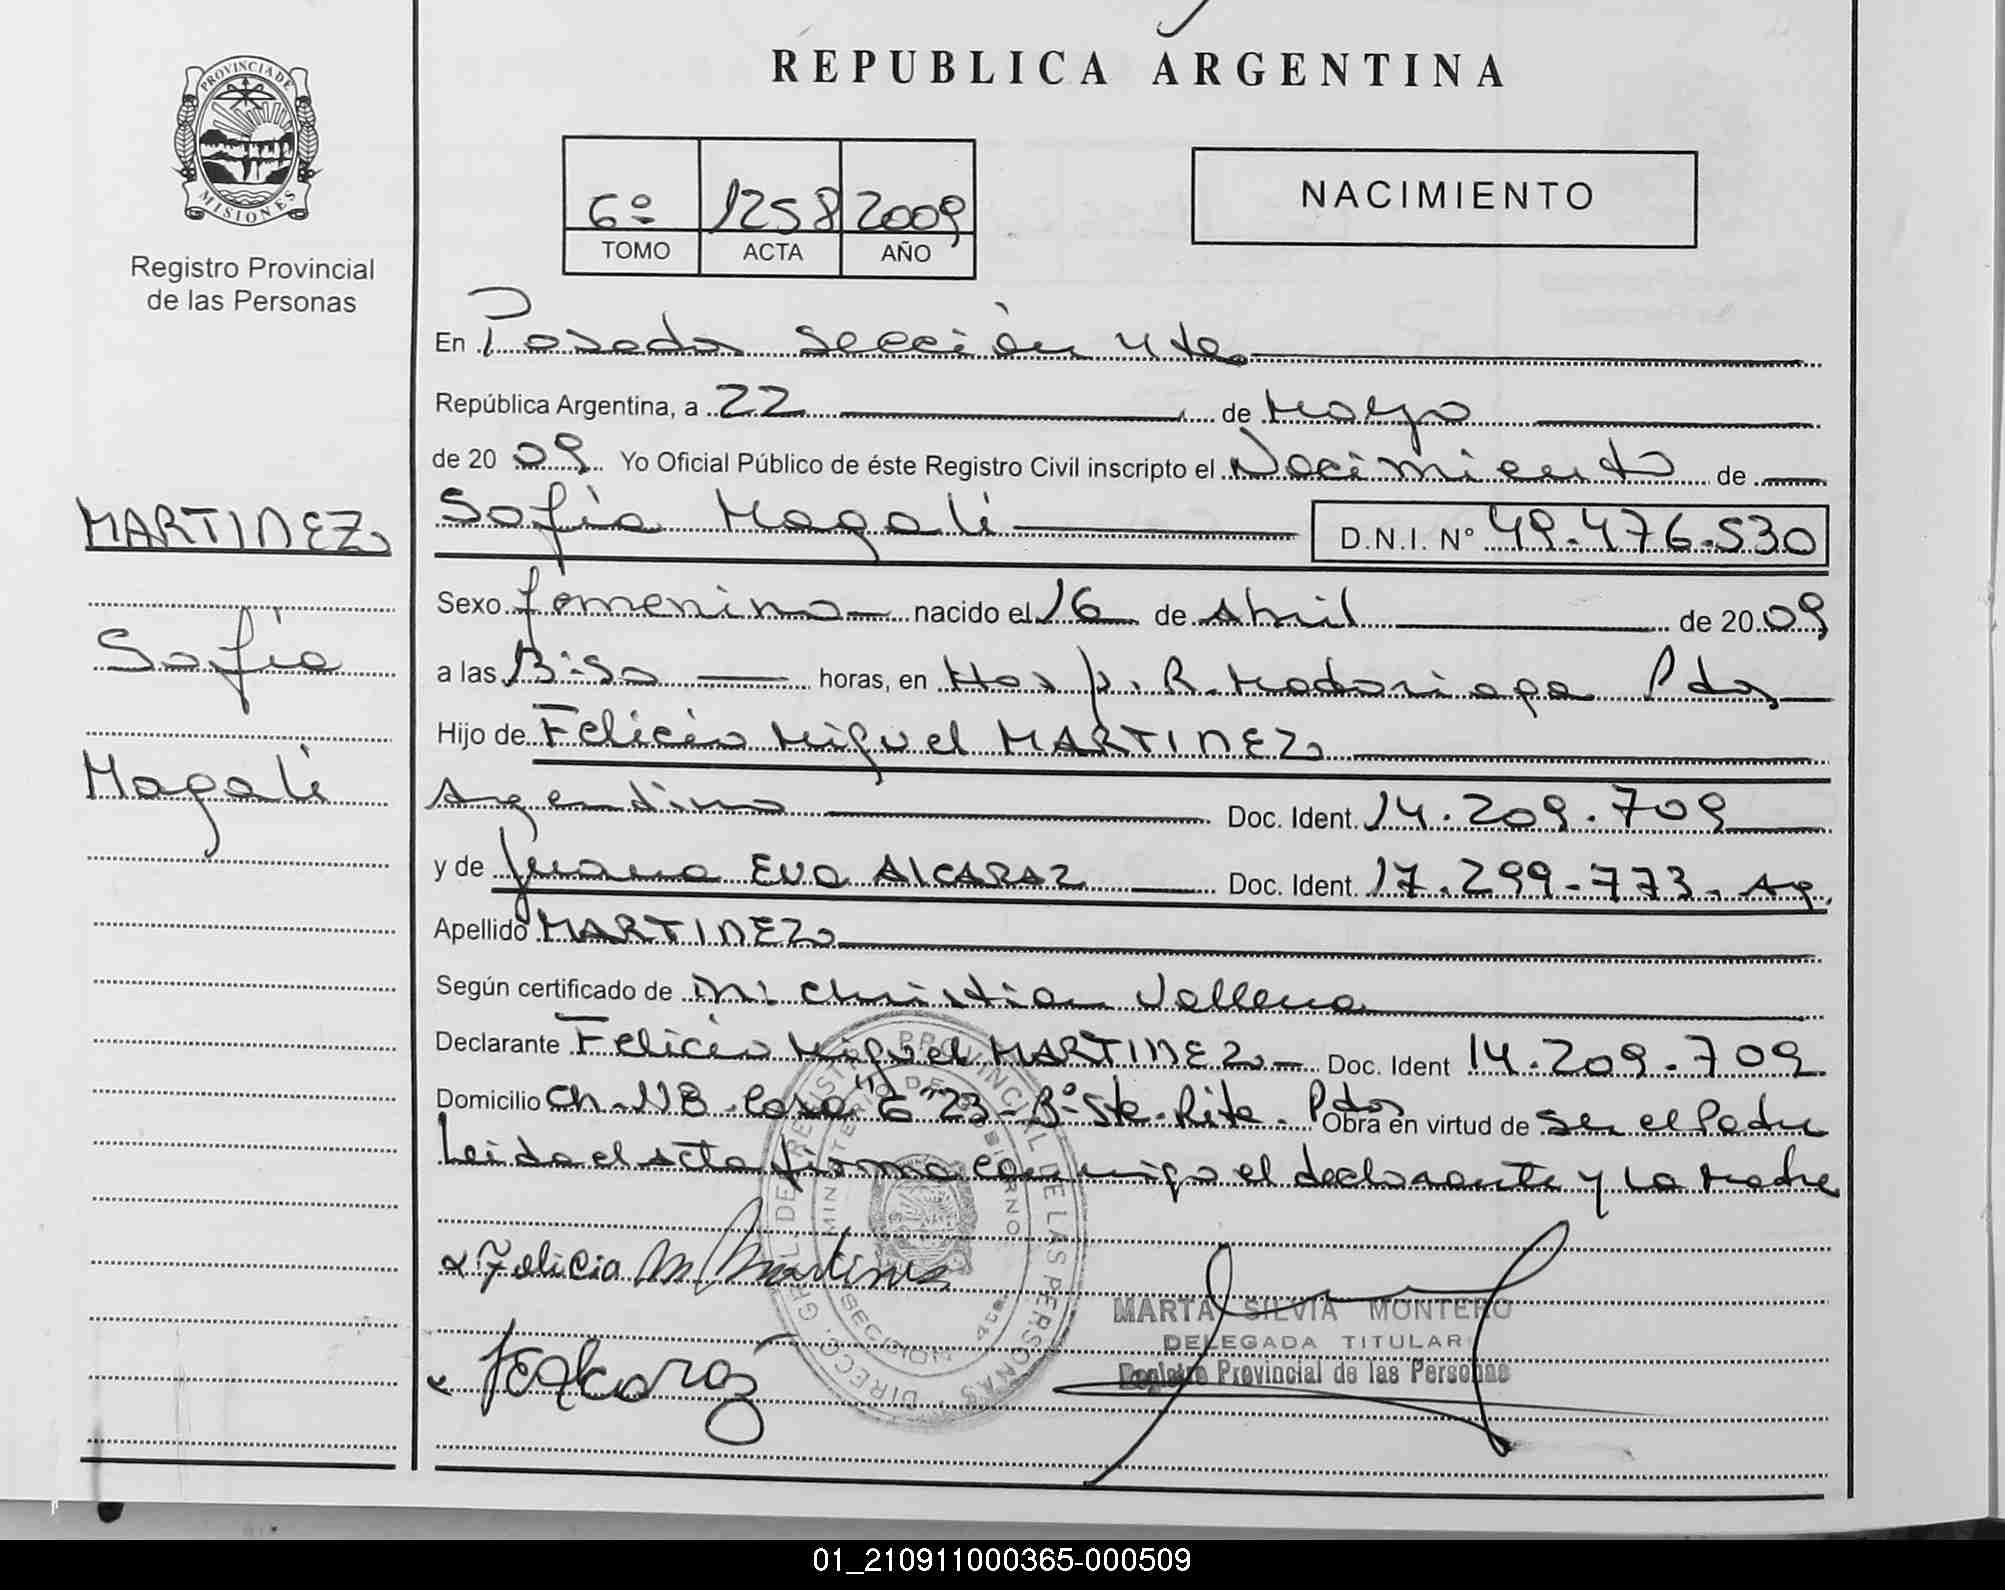 REPUBLICA ARGENTINA
PROVINCIA DE
MISIONES
Registro Provincial
de las Personas
6º 1258 2009
TOMO ACTA AÑO
NACIMIENTO
En Posadas sección 4ta
República Argentina, a 22 de Mayo
de 2009 Yo Oficial Público de éste Registro Civil inscripto el Nacimiento de
MARTINEZ
Sofía Magalí D.N.I. Nº 49.476.530
Sexo femenino nacido el 16 de Abril de 2009
Sofía
a las 13:50 horas, en Hosp. R. Madariaga Pdas
Hijo de Felicio Miguel MARTINEZ
Magalí
Argentino Doc. Ident. 14.209.709
y de Juana Eva ALCARAZ Doc. Ident. 17.299.773 - Ag.
Apellido MARTINEZ
Según certificado de Christian
Declarante Felicio Miguel MARTINEZ Doc. Ident 14.209.709
Domicilio Ch. 118 Casa "6" 23 - Bº Sta. Rita. Pdas Obra en virtud de ser el Padre
Leida el acta firma conmigo el declarante y la Madre
Felicio M Martinez
DIRECC. GRAL. DE REGISTRO PROVINCIAL DE LAS PERSONAS
MINISTERIO DE GOBIERNO
SECCION 4ta.
MARTA SILVIA MONTERO
DELEGADA TITULAR
Registro Provincial de las Personas
JEAlcaraz
01_210911000365-000509